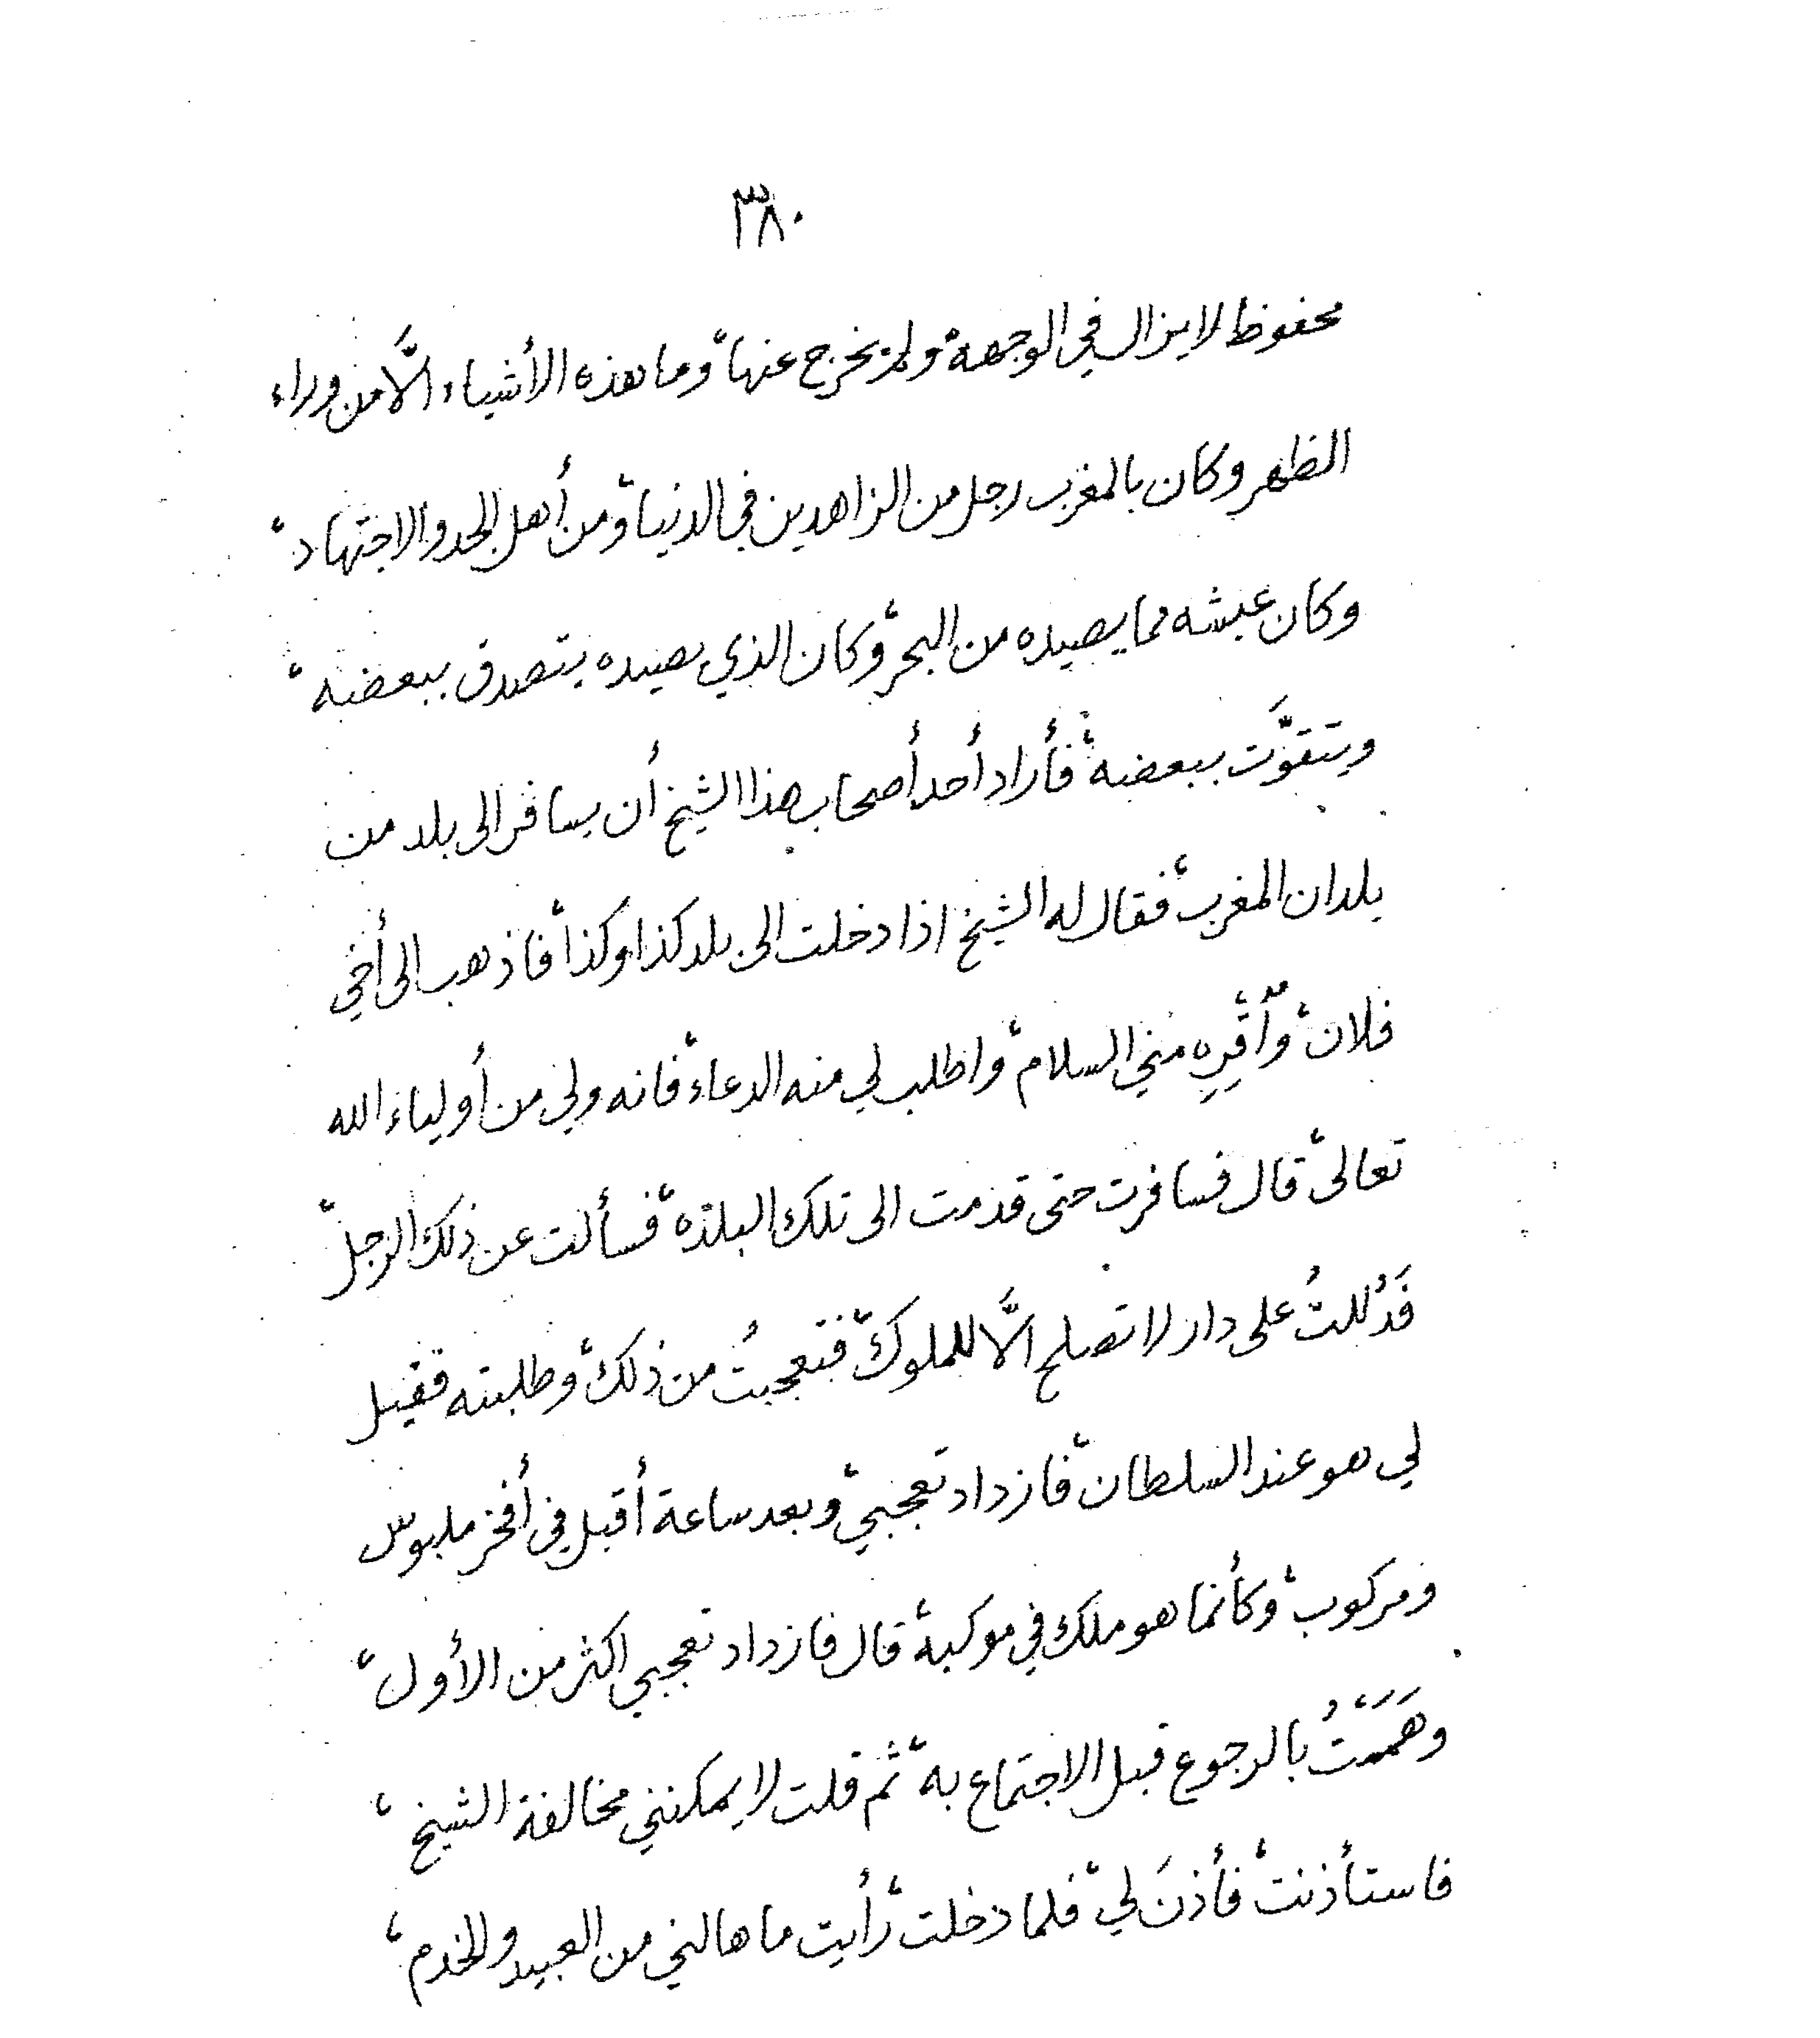 ٣٨٠
محفوظ لا يزال في الوجهة، ولم يخرج عنها، وما هذه الأشياء الَّا من وراء
الظهر وكان بالمغرب رجل من الزاهدين في الدنيا، ومن أهل الجد والاجتهاد،
وكان عيشه مما يصيده من البحر، وكان الذي يصيده يتصدق ببعضه،
ويتقوَّت ببعضه، فأراد أحد أصحاب هذا الشيخ أن يسافر الى بلد من
بلدان المغرب، فقال له الشيخ اذا دخلت الى بلد كذا وكذا، فاذهب الى أخي
فلان، وأَقْرِه مني السلام، واطلب لي منه الدعاء، فانه ولي من أولياء الله
تعالى، قال فسافرت حتى قدمت الى تلك البلدة، فسألت عن ذلك الرجل،
فَدُللتُ على دار لا تصلح الَّا للملوك، فتعجبتُ من ذلك، وطلبته فقيل
لي هو عند السلطان، فازداد تعجبي، وبعد ساعة أقبل في أفخر ملبوس
ومركوب، وكأنما هو ملك في موكبه، قال فازداد تعجبي اكثر من الأول،
وهَمَمْتُ بالرجوع قبل الاجتماع به، ثم قلت لا يمكنني مخالفة الشيخ،
فاستأذنت، فأذنَ لي، فلما دخلت، رأيت ما هالني من العبيد والخدم،